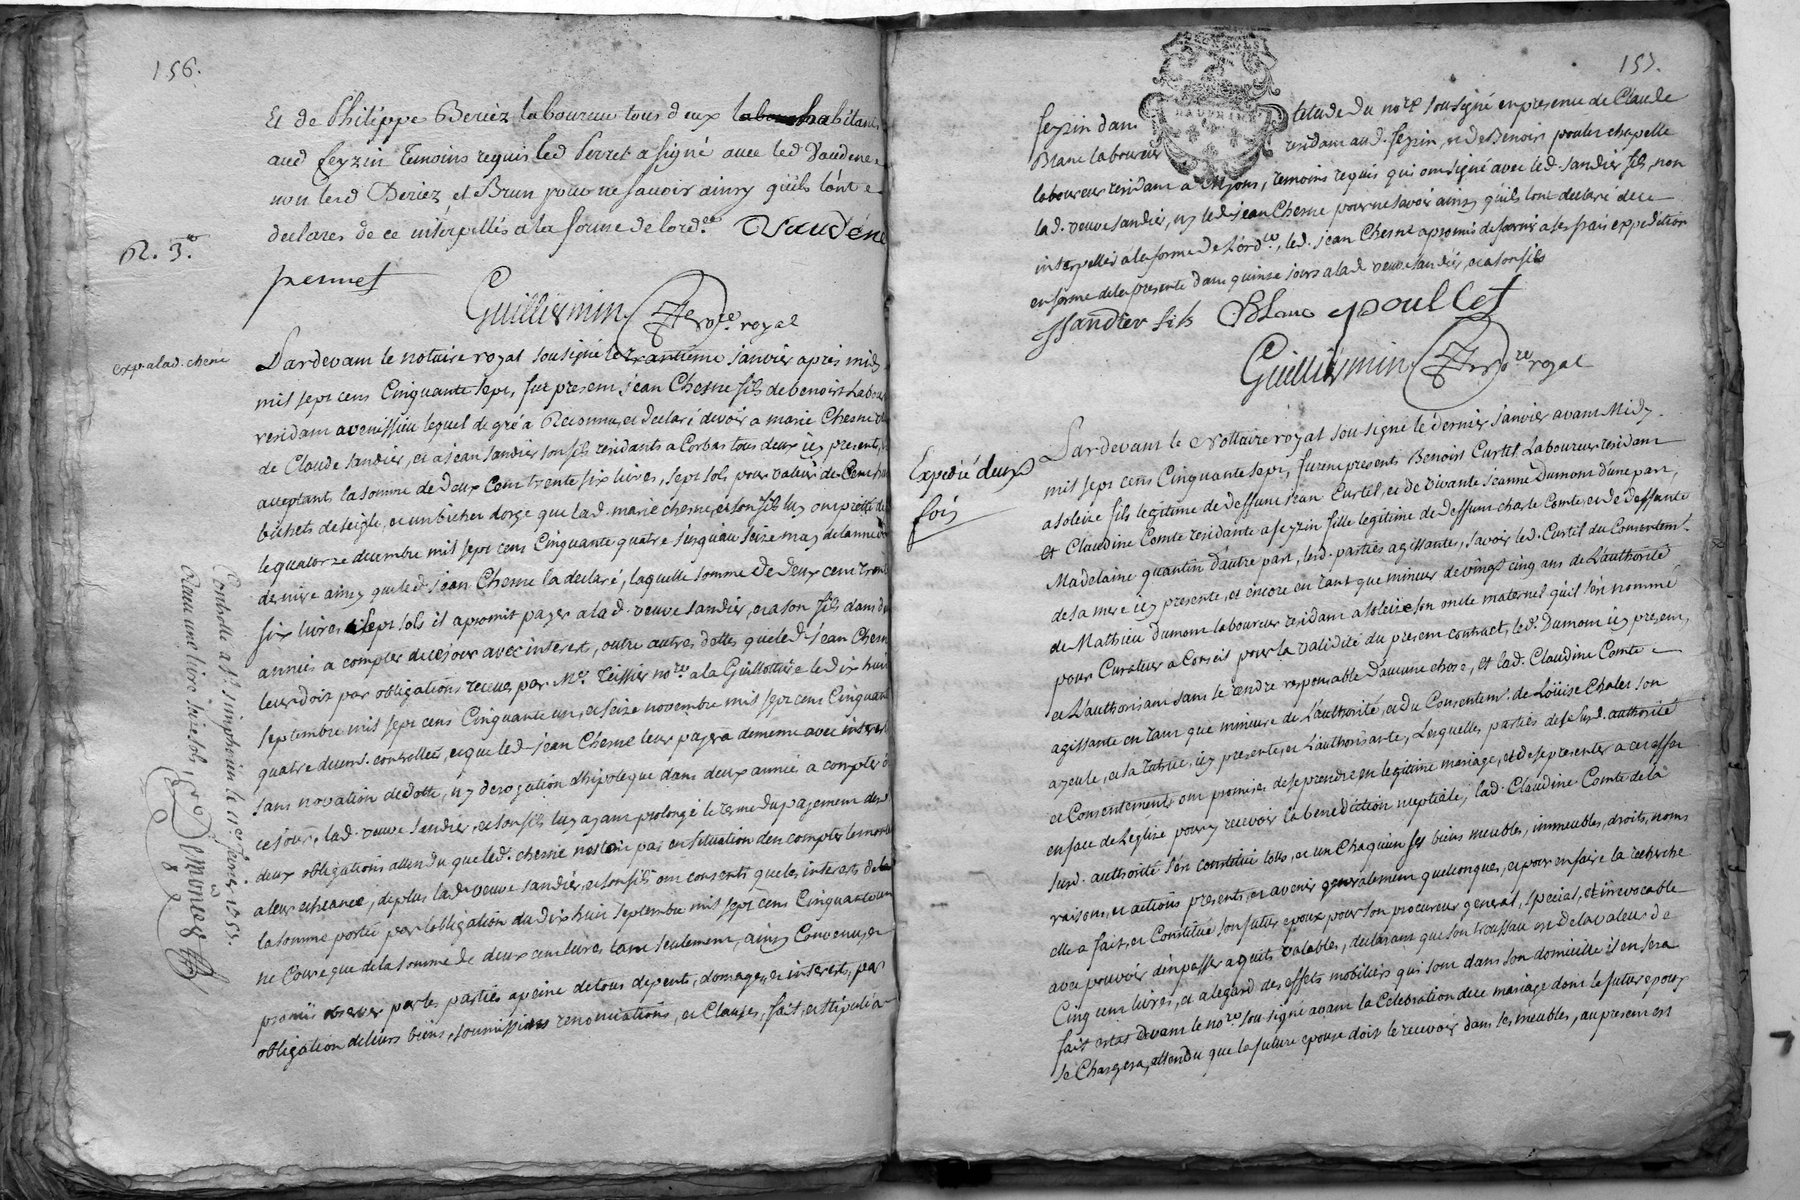 156.
Et de Philippe Beriez laboureur tous deux habitants
aud feyzin Temoins requis led Perret a signé avec led Vaudene
non lesd Beriez et Brun pour ne savoir ainsy quils lont
declarés de ce interpellés a la forme de lord.ce Vaudéné
R. 3.
perret
Guilliermin No.re royal
exp. a lad. chene
Pardevant le notaire royal soussigné le trantieme janvier apres midy
mil sept cens Cinquante sept, fut present jean Chesne fils de benoist Labour
residant a venissieu lequel de gré a Reconnu, et declaré devoir a marie Chesne
de Claude sandier, et a jean sandier son fils residants a Corbas tous deux icy presents,
acceptants la somme de Deux Cent trente six livres, sept sols pour valeur de Cent
bichets de seigle, et un bichet dorge que lad. marie chesne, et son fils luy ont
le quatorze decembre mil sept cens Cinquante quatre jusquau seize may de lannée
derniere ainsy que led. jean Chesne la declaré, laquelle somme de Deux cent trente
six livres sept sols il a promit payer a lad. veuve sandier, et a son fils dans
années a compter de ce jour avec interest, outre autres dettes que led. jean Chesne
leur doit par obligations receues par Me. Teissier no.re a la Guillottiere le dix huit
septembre mil sept cens Cinquante un, et seize novembre mil sept cens Cinquante
quatre duem. controllées, et que led. jean Chesne leur payera de meme avec interest
sans novation de dette, ny derogation dhipoteque dans deux année a compter de
ce jour, lad. veuve sandier, et son fils luy ayant prolongé le terme du payement desd.
deux obligations attendu que led. chesne nestoit pas en situation den compter le montant
a leur echeance, de plus lad. veuve sandier, et son fils ont consenti que les interests de
la somme portée par lobligation du Dix huit septembre mil sept cens Cinquante un
ne Coure que de la somme de deux cent livres tant seulement, ainsy Convenu, et
promis observer par les parties a peine de tous depents, domages, et interest, par
obligation de leurs biens, soumissions renonciations, et Clauses, fait, et stipulé a
Controllé a St. simphorien le 11er fevrier 1757.
157.
feyzin dans letude du no.re soussigné en presence de Claude
Blanc laboureur residant aud. feyzin, et de Benoit poulet chapelle
laboureur residant a Mions, temoins requis qui ont signé avec led. sandier fils, non
lad. veuve sandier, ny led. jean Chesne pour ne savoir ainsy quils lont declaré de ce
interpellés a la forme de Lord.ce, led. jean Chesne a promis de fournir a ses frais expedition
en forme de la presente dans quinze jours a lad veuve sandier, et a son fils
jSandier fils Blanc poullet
Guilliermin No.re royal
Expedié deux
fois
Pardevant le Nottaire royal soussigné le dernier janvier avant Midy
mil sept cens Cinquante sept, furent presents Benoist Curtil Laboureur residant
a soleize fils legitime de deffunt jean Curtil, et de vivante jeanne Dumont dune part,
et Claudine Comte residante a feyzin fille legitime de deffunt charle Comte, et de deffunte
Madelaine quantin d'autre part, lesd. parties agissante, savoir led. Curtil du Consentem.t
de sa mere icy presente, et encore en tant que mineur de vingt cinq ans de L'authorité
de Mathieu Dumont laboureur residant a soleize son oncle maternel qu'il s'en nommé
pour Curateur a Conseil pour la validité du present contract, led. Dumont icy present,
et L'authorisant sans se rendre responsable D'aucune chose, et lad. Claudine Comte
agissante en tant que mineure de L'authorité, et du Consentem.t de Loüise Chalet son
ayeule, et sa tutrice, icy presente, et L'authorisante, Lesquelles parties de se susd. authorité
et Consentements ont promises de se prendre en legitime mariage, et de se presenter a cet effet
en face de L'eglize pour y recevoir la benediction nuptiale; lad. Claudine Comte de la
susd. authorité s'en constitué tous, et un Chaquun ses biens meubles, immeubles, droits, noms
raisons, et actions presents, et avenir generalement quelconques, et pour en faire la recherche
elle a fait, et Constitué son futur epoux pour son procureur general, special, et irrevocable
avec pouvoir d'en passer aquits valables, declarant que son troussau est de la valeur de
Cinq cent livres, et a legard des effets mobiliers qui sont dans son domicille il en sera
fait estat devant le no.re soussigné avant la Celebration de ce mariage dont le futur epoux
se Chargera, attendu que la future epouse doit le recevoir dans les meubles, au present est